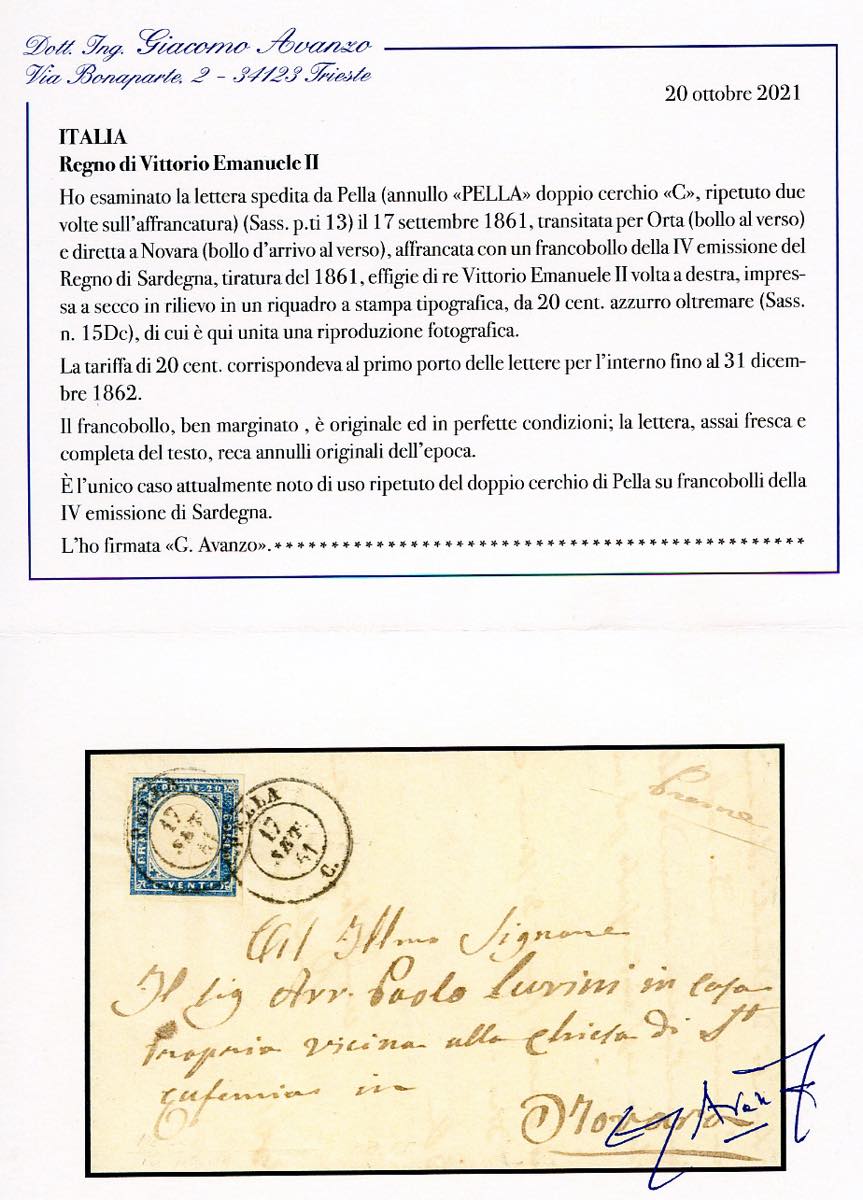 Dott. Ing. Giacomo Avanzo
Via Bonaparte, 2 – 34123 Trieste
20 ottobre 2021
ITALIA
Regno di Vittorio Emanuele II
Ho esaminato la lettera spedita da Pella (annullo «PELLA» doppio cerchio «C», ripetuto due
volte sull'affrancatura) (Sass. p.ti 13) il 17 settembre 1861, transitata per Orta (bollo al verso)
e diretta a Novara (bollo d'arrivo al verso), affrancata con un francobollo della IV emissione del
Regno di Sardegna, tiratura del 1861, effigie di re Vittorio Emanuele II volta a destra, impres-
sa a secco in rilievo in un riquadro a stampa tipografica, da 20 cent. azzurro oltremare (Sass.
n. 15Dc), di cui è qui unita una riproduzione fotografica.
La tariffa di 20 cent. corrispondeva al primo porto delle lettere per l'interno fino al 31 dicem-
bre 1862.
Il francobollo, ben marginato , è originale ed in perfette condizioni; la lettera, assai fresca e
completa del testo, reca annulli originali dell'epoca.
È l'unico caso attualmente noto di uso ripetuto del doppio cerchio di Pella su francobolli della
IV emissione di Sardegna.
L'ho firmata «G. Avanzo».***********************************************
PELLA
17
SET
61
POSTE 20
C. VENTI
PELLA
17
SET.
61
C.
All Illmo Signore
Il Sig Avv. Paolo in casa
Propria vicina alla chiesa di St
eufemia in
Novara